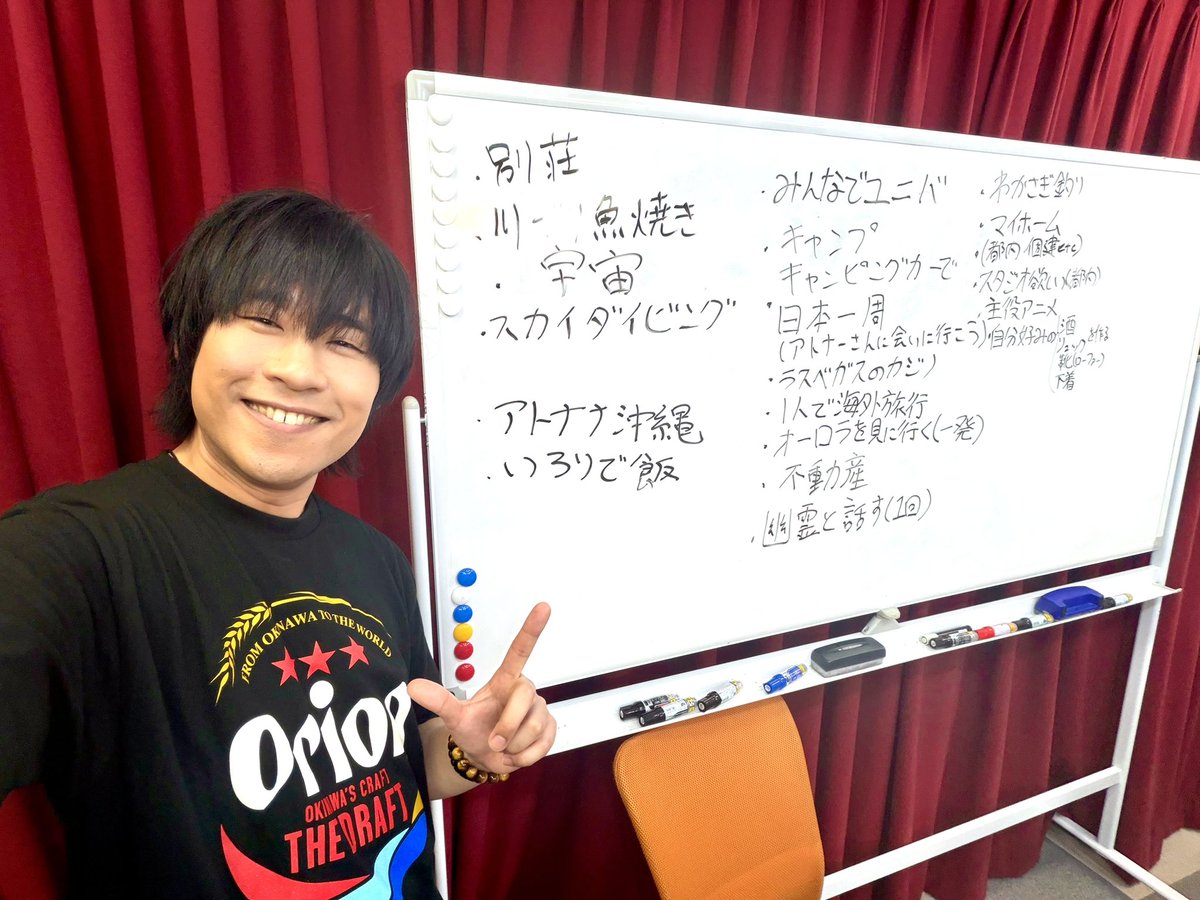 ・別荘
・川 魚焼き
・宇宙
・スカイダイビング
・アトナナ沖縄
・いろりで飯
・みんなでユニバ
・キャンプ
キャンピングカーで
・日本一周
(アトナーさんに会いに行こう)
・ラスベガスのカジノ
・1人で海外旅行
・オーロラを見に行く(一発)
・不動産
・幽霊と話す(1回)
・わかさぎ釣り
・マイホーム
・(都内 個建etc)
・スタジオ欲しい(都内)
・主役アニメ
・自分好みの
酒
リュック を作る
靴(ローファー)
下着
FROM OKINAWA TO THE WORLD
Orion
OKINAWA'S CRAFT
THE DRAFT